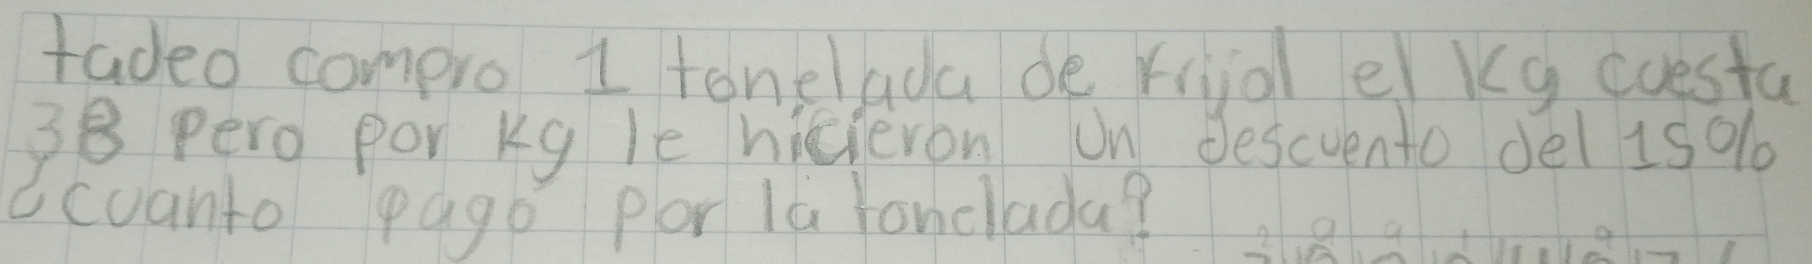 tadeo compro 1 tonelada de frijol el Kg cuesta
38 pero por Kg le hicieron un descuento del 15%
¿cuanto pagó por la tonelada?